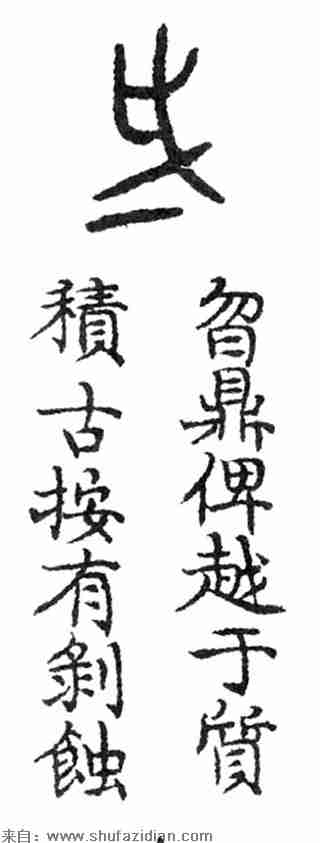 曶鼎俾越于質
積古按有剝蝕
来自：www.shufazidian.com